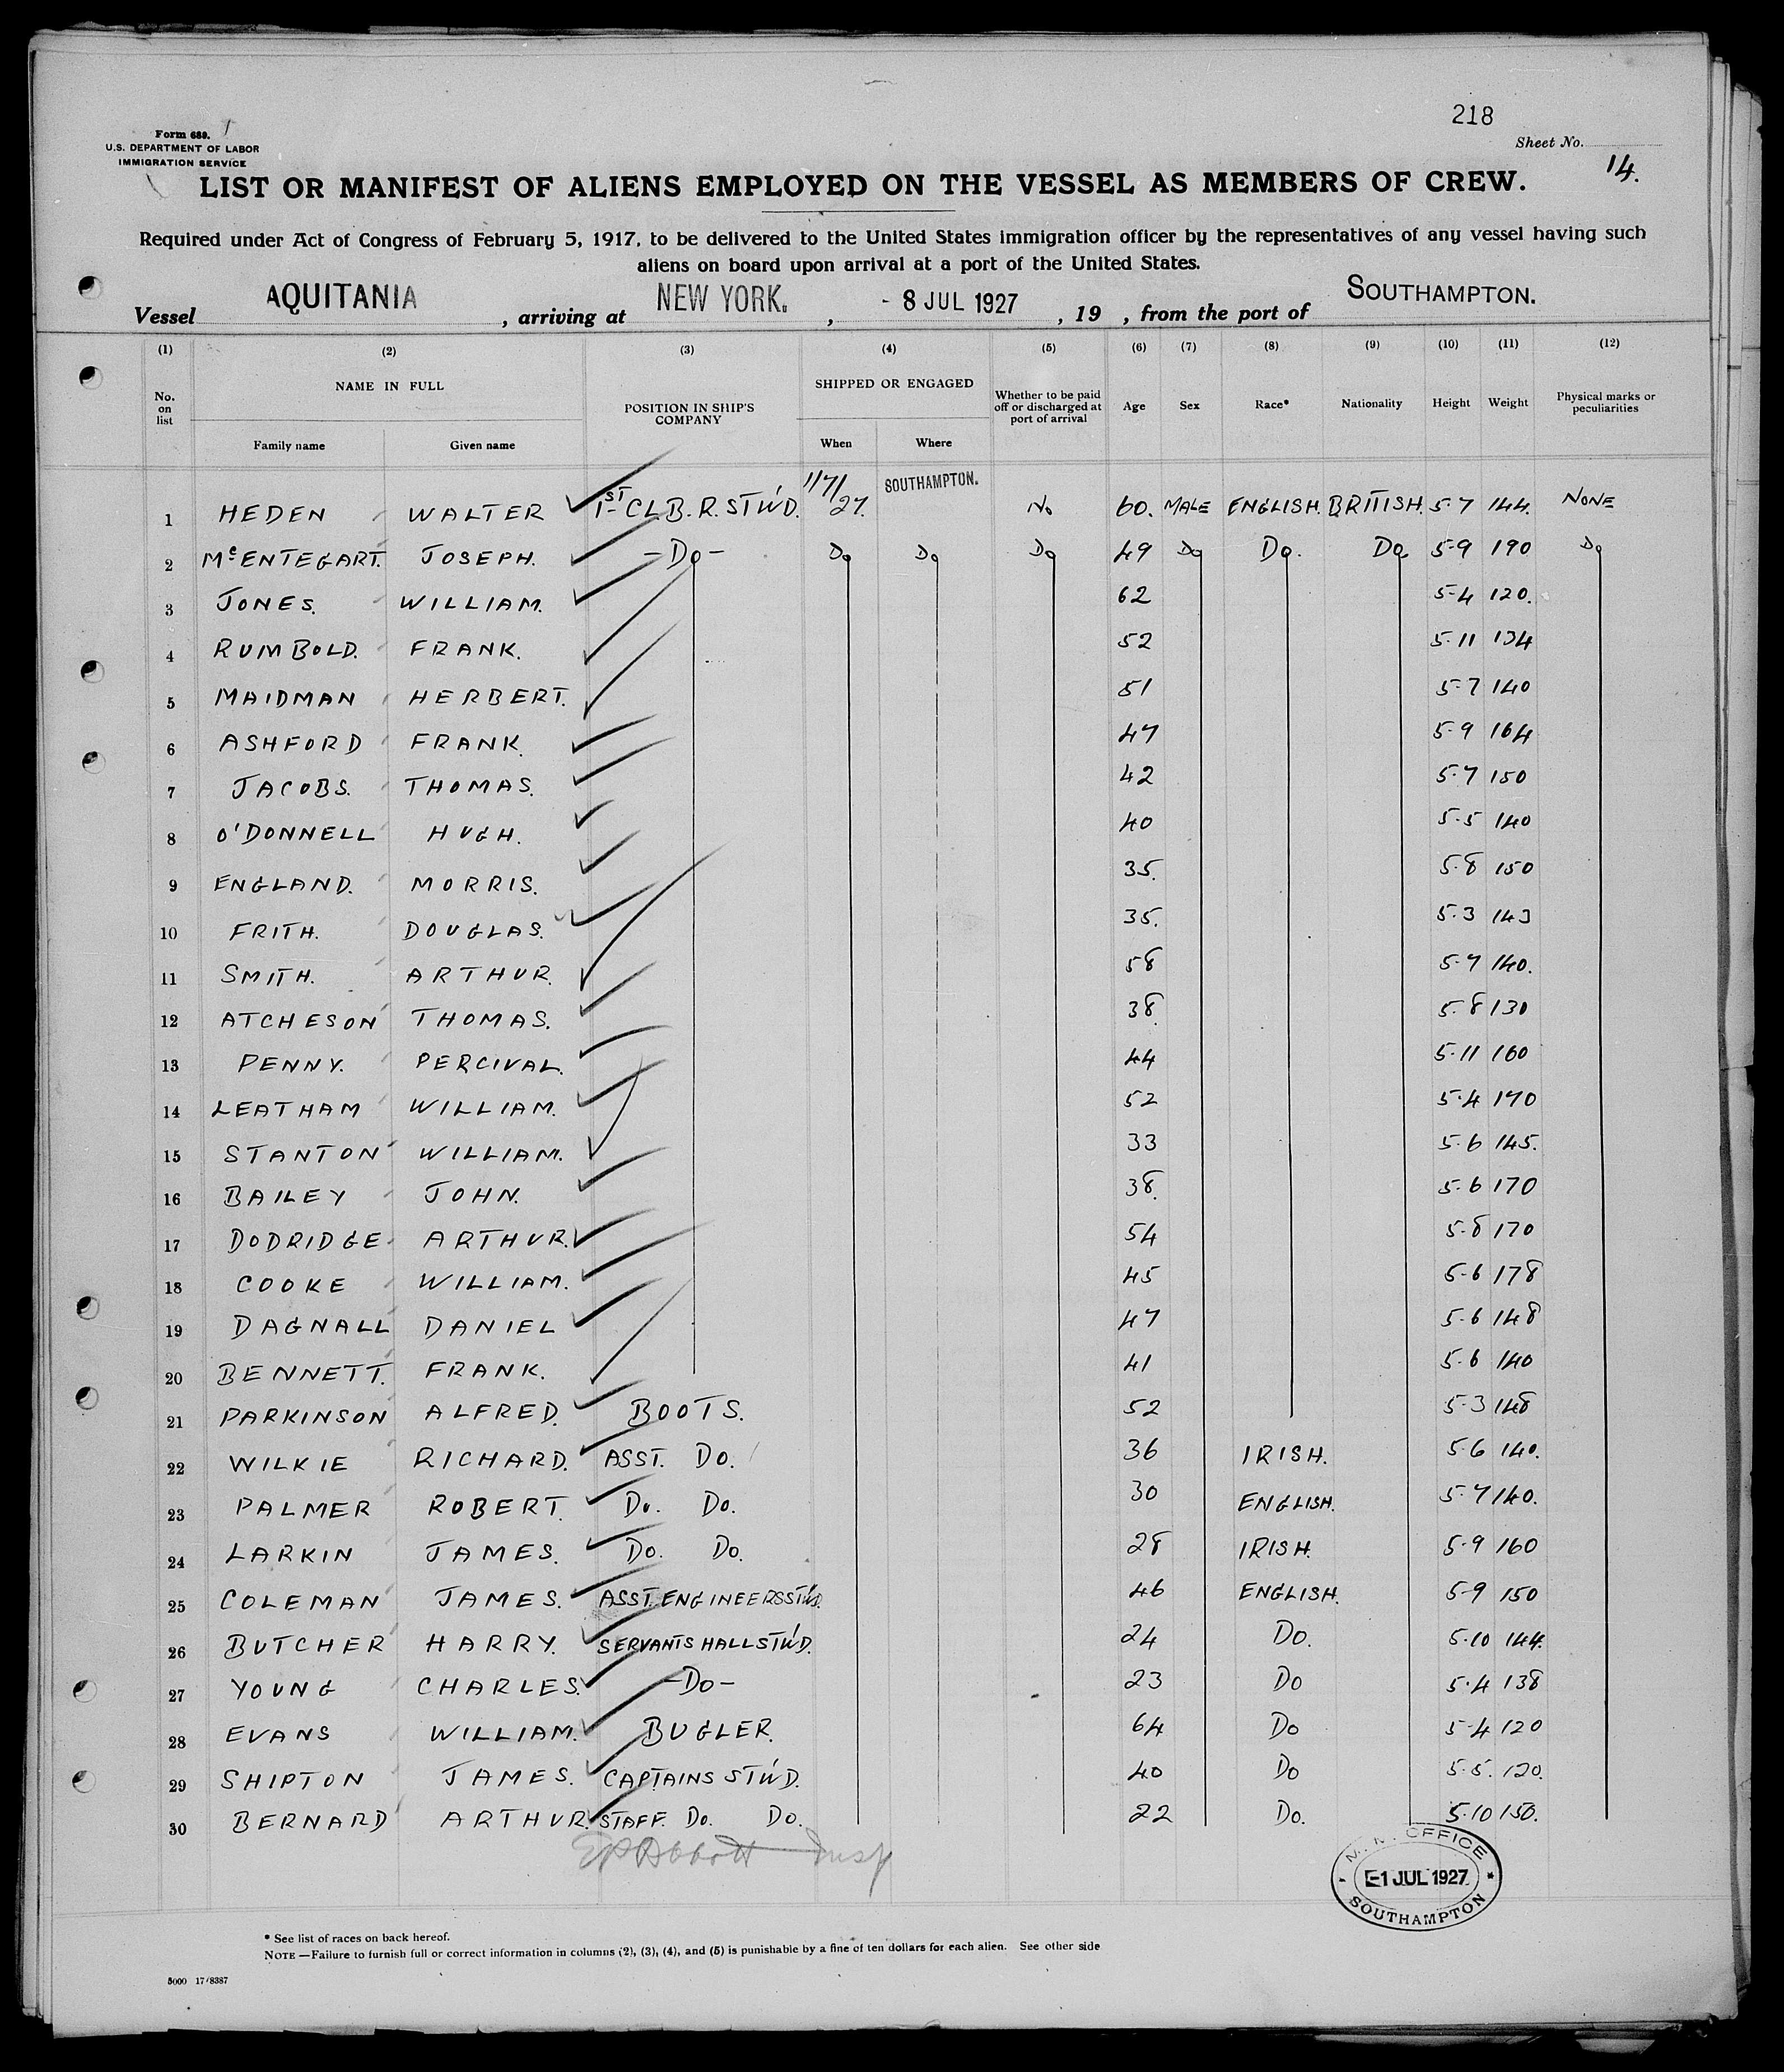 218
Form 689.
U.S. DEPARTMENT OF LABOR
IMMIGRATION SERVICE
Sheet No. 14.
LIST OR MANIFEST OF ALIENS EMPLOYED ON THE VESSEL AS MEMBERS OF CREW.
Required under Act of Congress of February 5, 1917, to be delivered to the United States immigration officer by the representatives of any vessel having such
aliens on board upon arrival at a port of the United States.
Vessel AQUITANIA , arriving at NEW YORK. , - 8 JUL 1927 , 19 , from the port of SOUTHAMPTON.
(1) (2) (3) (4) (5) (6) (7) (8) (9) (10) (11) (12)
No. on list NAME IN FULL Family name Given name POSITION IN SHIP'S COMPANY SHIPPED OR ENGAGED When Where Whether to be paid off or discharged at port of arrival Age Sex Race* Nationality Height Weight Physical marks or peculiarities
1 HEDEN WALTER 1ST CL.B.R.STW'D. 1/7/27. SOUTHAMPTON. No 60. MALE ENGLISH. BRITISH. 5-7 144. NONE
2 McENTEGART. JOSEPH. -Do- Do Do Do 49 Do Do. Do 5-9 190 Do
3 JONES. WILLIAM. 62 5-4 120.
4 RUMBOLD. FRANK. 52 5.11 134
5 MAIDMAN HERBERT. 51 5-7 140
6 ASHFORD FRANK. 47 5.9 164
7 JACOBS. THOMAS. 42 5.7 150
8 O'DONNELL HUGH. 40 5.5 140
9 ENGLAND. MORRIS. 35. 5.8 150
10 FRITH. DOUGLAS. 35. 5.3 143
11 SMITH. ARTHUR. 58 5.7 140.
12 ATCHESON THOMAS. 38. 5.8 130
13 PENNY. PERCIVAL. 44 5.11 160
14 LEATHAM WILLIAM. 52 5.4 170
15 STANTON WILLIAM. 33 5.6 145.
16 BAILEY JOHN. 38. 5.6 170
17 DODRIDGE ARTHUR. 54 5.8 170
18 COOKE WILLIAM. 45 5.6 178
19 DAGNALL DANIEL 47 5.6 148
20 BENNETT. FRANK. 41 5.6 140
21 PARKINSON ALFRED. BOOTS. 52 5-3 148
22 WILKIE RICHARD. ASST. Do. 36 IRISH. 5.6 140.
23 PALMER ROBERT. Do. Do. 30 ENGLISH. 5.7 140.
24 LARKIN JAMES. Do. Do. 28 IRISH. 5.9 160
25 COLEMAN JAMES. ASST. ENGINEERS STW'D. 46 ENGLISH. 5-9 150
26 BUTCHER HARRY. SERVANTS HALL STW'D. 24 Do. 5.10 144.
27 YOUNG CHARLES. -Do- 23 Do 5.4 138
28 EVANS WILLIAM. BUGLER. 64 Do 5-4 120
29 SHIPTON JAMES. CAPTAINS STW'D. 40 Do 5.5. 120.
30 BERNARD ARTHUR. STAFF. Do. Do. 22 Do. 5.10 150.
Abbott Insp
OFFICE
1 JUL 1927
SOUTHAMPTON
* See list of races on back hereof.
NOTE —Failure to furnish full or correct information in columns (2), (3), (4), and (5) is punishable by a fine of ten dollars for each alien. See other side
5000 17/8387